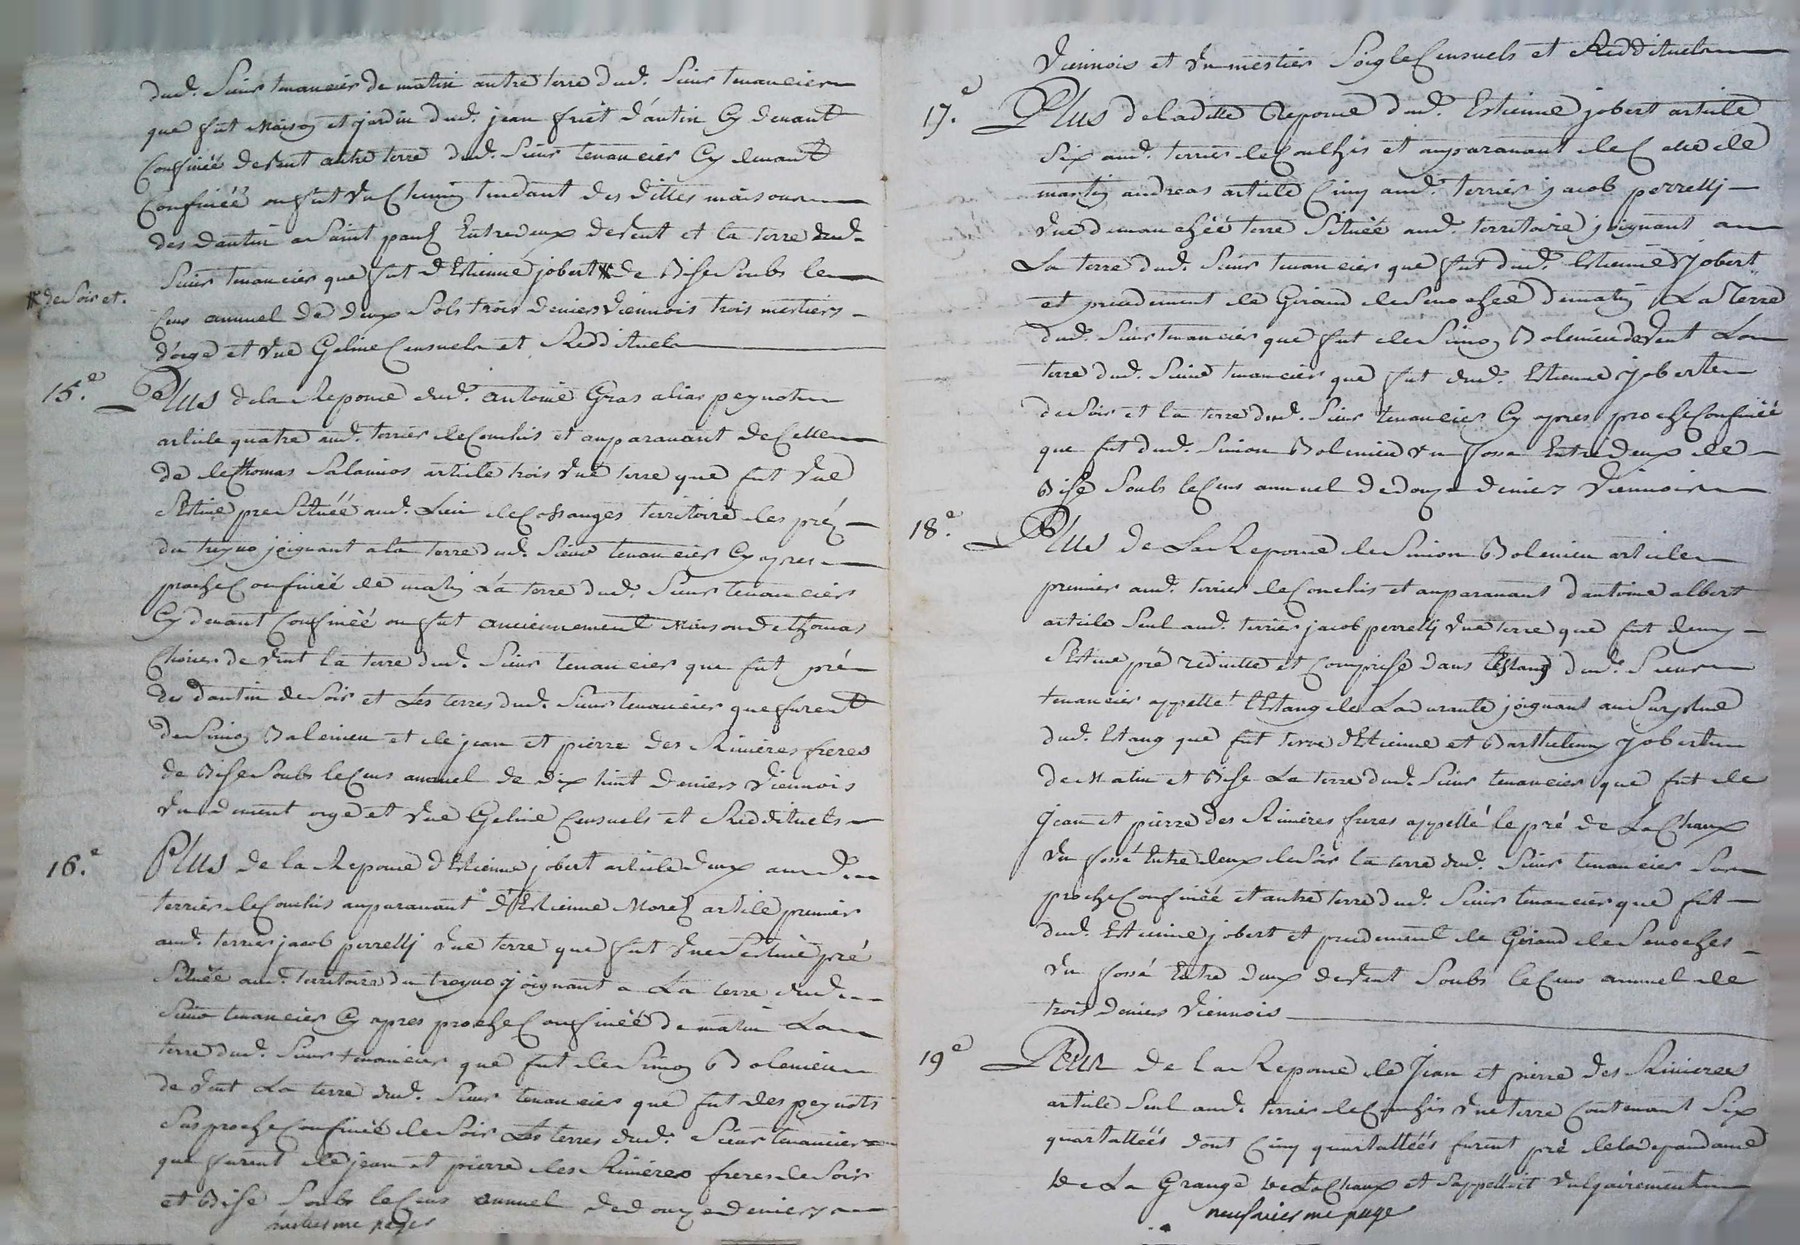 dud. Sieur tenancier de matin autre terre dud. Sieur tenancier
que fut Maison et jardin dud. jean friet dántin Cy devant
Confinéé de vent autre terre dud. Sieur tenancier Cy devant
Confinéé ou fut un Chemin tendant des dittes maisons
des dantin a Saint paul Entredeux de vent et la terre dud.
Sieur tenancier que fut d'Estienne jobert * de Bise Soubs le
* de Soir et.
Cens annuel de deux Sols trois deniers Viennois trois mestiers
d'orge et Vne Geline Censuels et Reddituels
15.e Plus de la Reponce dud. antoine Gras alias peynot
article quatre aud. terrier de Conchis et auparavant de Celle
de de thomas Salamos article trois Vne terre que fut Vne
Sestine pre Situéé aud. Lieu de Cossanges territoire des préz
du treyno joignant a la terre dud. Sieur tenancier Cy apres
proche Confinéé de matin La terre dud. Sieur tenancier
Cy devant Confinéé ou fut anciennement Maison de thomas
de Vent la terre dud. Sieur tenancier que fut pré
des dantin de Soir et Les terres dud. Sieur tenancier que furent
de Simon Bolemieu et de jean et pierre des Riuiéres freres
de Bise Soubs le Cens annuel de dix huit deniers Viennois
orge et Vne Geline Censuels et Reddituels
16.e Plus de la Reponce d'Estienne jobert article deux aud.
terrier de Conchis auparavant d'Estienne Morel article premier
aud. terrier jacob perrelly Vne terre que fut Vne Sestine pré
Située aud. territoire du treyno joignant a La terre dud.
Sieur tenancier Cy apres proche Confinéé de matin La
terre dud. Sieur tenancier que fut de Simon Bolemieu
de Vent La terre dud. Sieur tenancier que fut des peynots
Sus proche Confinéé de Soir Les terres dud. Sieur tenancier
que furent de jean et pierre des Riuiéres freres de Soir
et Bise Soubs le Cens annuel de douze deniers
huitiesme page
Viennois et Vn mestier Soigle Censuels et Reddituels
17.e Plus de la ditte Reponce dud. Estienne jobert article
Six aud. terrier de Conchis et auparavant de Celle de
martin andreas article Cinq aud. terrier jacob perrelly
Vne terre Situéé aud. territoire joignant a
La terre dud. Sieur tenancier que fut dud. Estienne Jobert
et precedement de Giraud de Senoches de matin La Terre
dud. Sieur tenancier que fut de Simon Bolemieu de Vent La
terre dud. Sieur tenancier que fut dud. Estienne Jobert
de Soir et la terre dud. Sieur tenancier Cy apres proche Confinéé
que fut dud. Simon Bolemieu Vn fosse Entredeux de
Bise Soubs le Cens annuel de douze deniers Viennois
18.e Plus de La Reponce de Simon Bolemieu article
premier aud. terrier de Conchis et auparavant d'antoine albert
article Seul aud. terrier jacob perrelly Vne terre que fut demy
Sestine pré reduitte et Comprise dans l'Estang dud. Sieur
tenancier appellé l'Estang de Ladurante joignant au Surplus
dud. Estang que fut terre d'Estienne et Barthelemy Jobert
de Matin et Bise La terre dud. Sieur tenancier que fut de
Jean et pierre des Riuiéres freres appellé le pré de La Chaux
Vn fossé Entre deux de Soir la terre dud. Sieur tenancier Sus
proche Confinéé et autre terre dud. Sieur tenancier que fut
dud. Estienne jobert et precedement de Giraud de Senoches
Vn fossé Entre deux de Vent Soubs le Cens annuel de
trois deniers Viennois
19.e Plus de la Reponce de Jean et pierre des Riuieres
article Seul aud. terrier de Conchis Vne terre Contenant Six
quartalléés dont Cinq quartalléés furent pré de la dependance
de La Grange de La Chaux et S'appelloit Vulgairement
neufviesme page